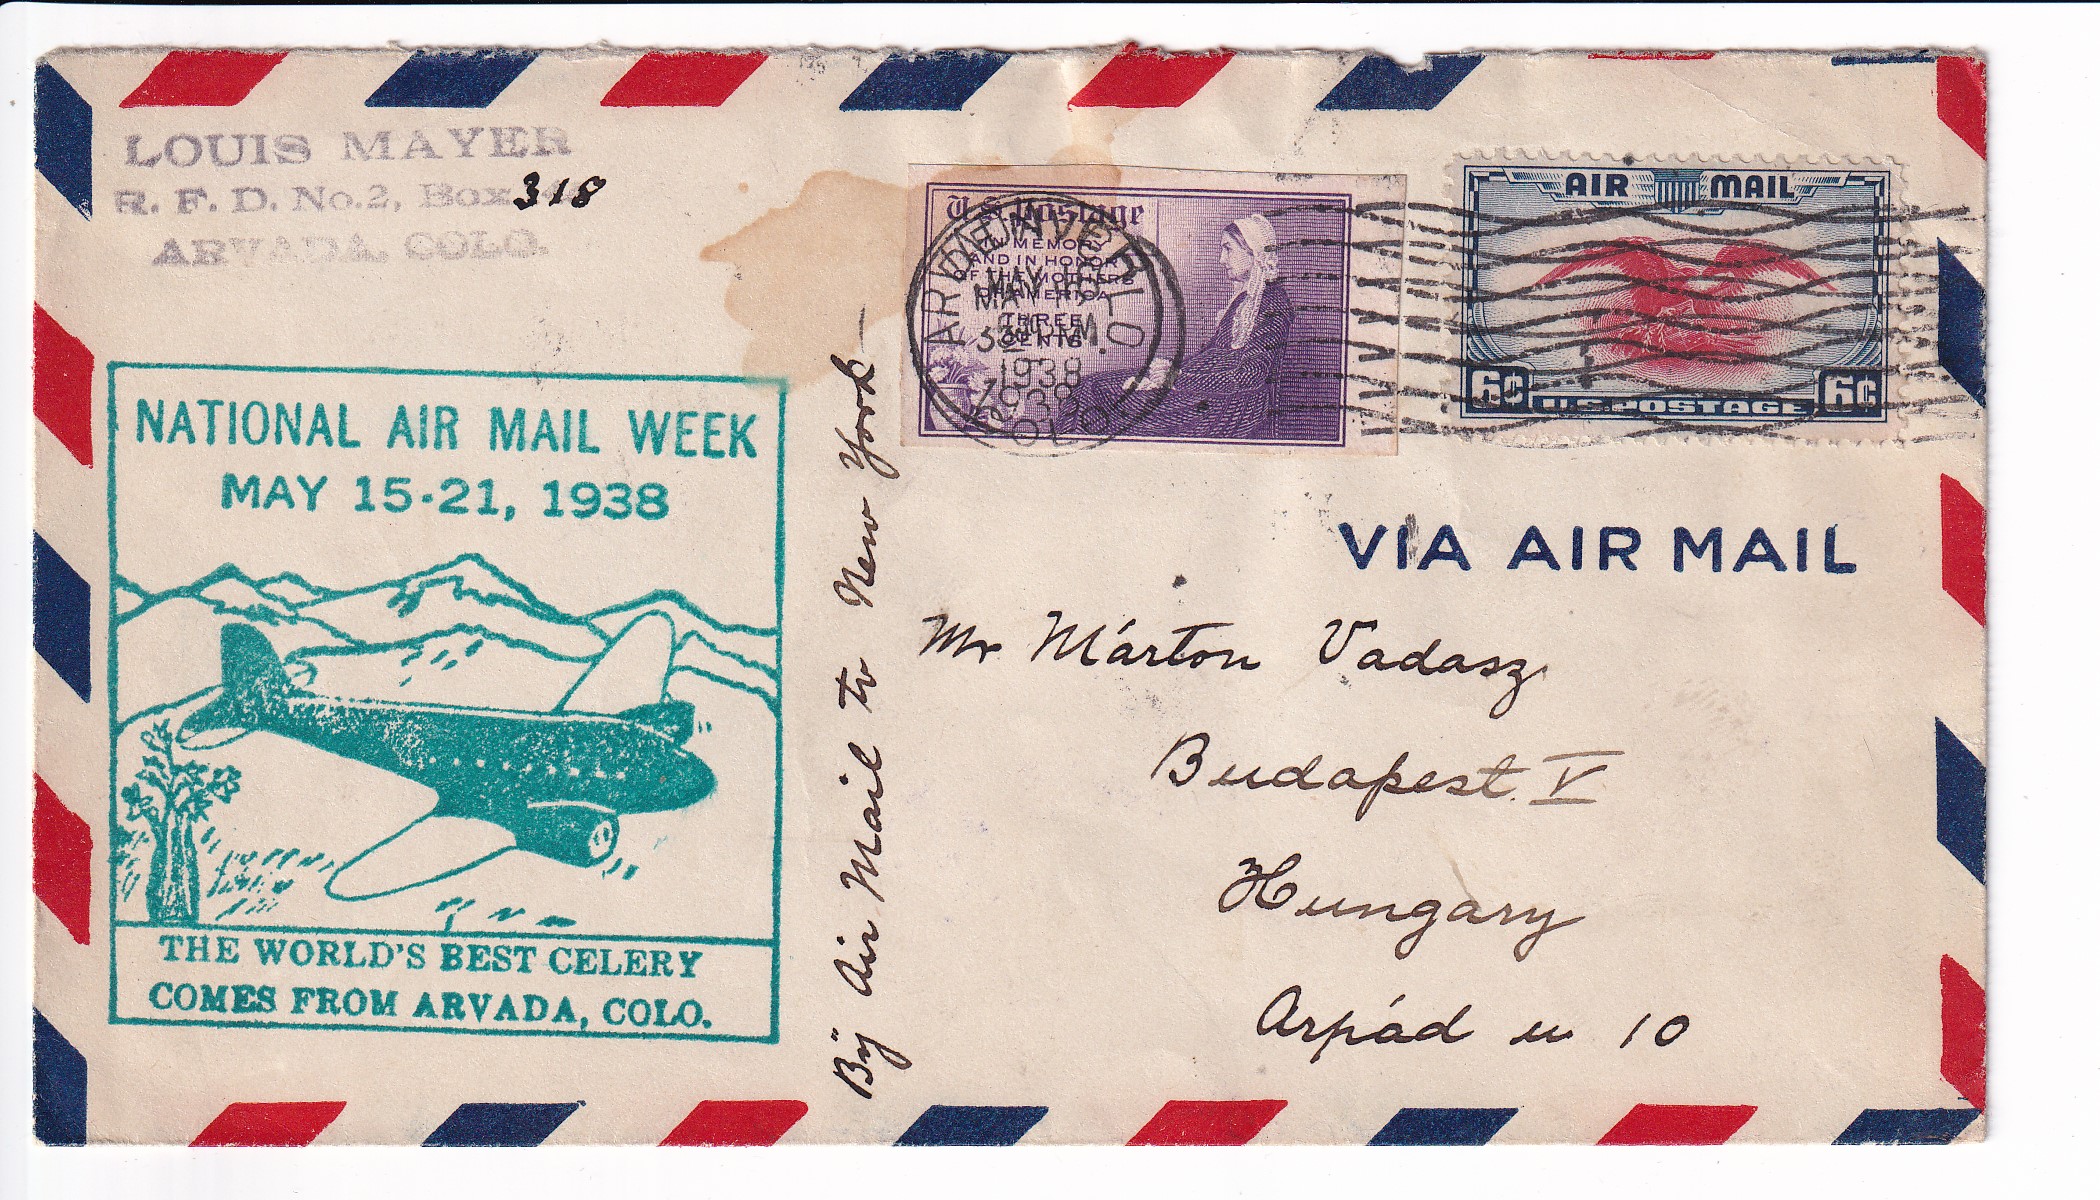 LOUIS MAYER
R. F. D. No. 2, Box 318
ARVADA, COLO.
U.S. Postage
IN MEMORY
AND IN HONOR
OF THE MOTHERS
OF AMERICA
THREE
CENTS
MAY
1938
AIR MAIL
6¢ U.S. POSTAGE 6¢
NATIONAL AIR MAIL WEEK
MAY 15-21, 1938
THE WORLD'S BEST CELERY
COMES FROM ARVADA, COLO.
By Air Mail to New York
VIA AIR MAIL
Mr Márton Vadasz
Budapest V
Hungary
Arpád u 10